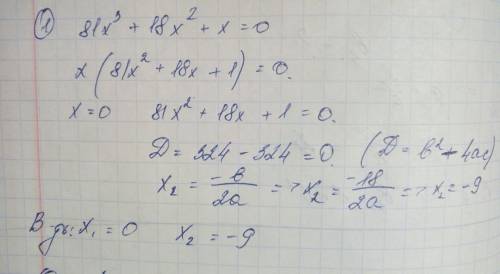 ① 81x³ + 18x² + x = 0
x(81x² + 18x + 1) = 0.
x = 0 81x² + 18x + 1 = 0.
D = 324 - 324 = 0. (D = b² - 4ac)
x₂ = -b/2a => x₂ = -18/2a => x₂ = -9
x₁ = 0 x₂ = -9